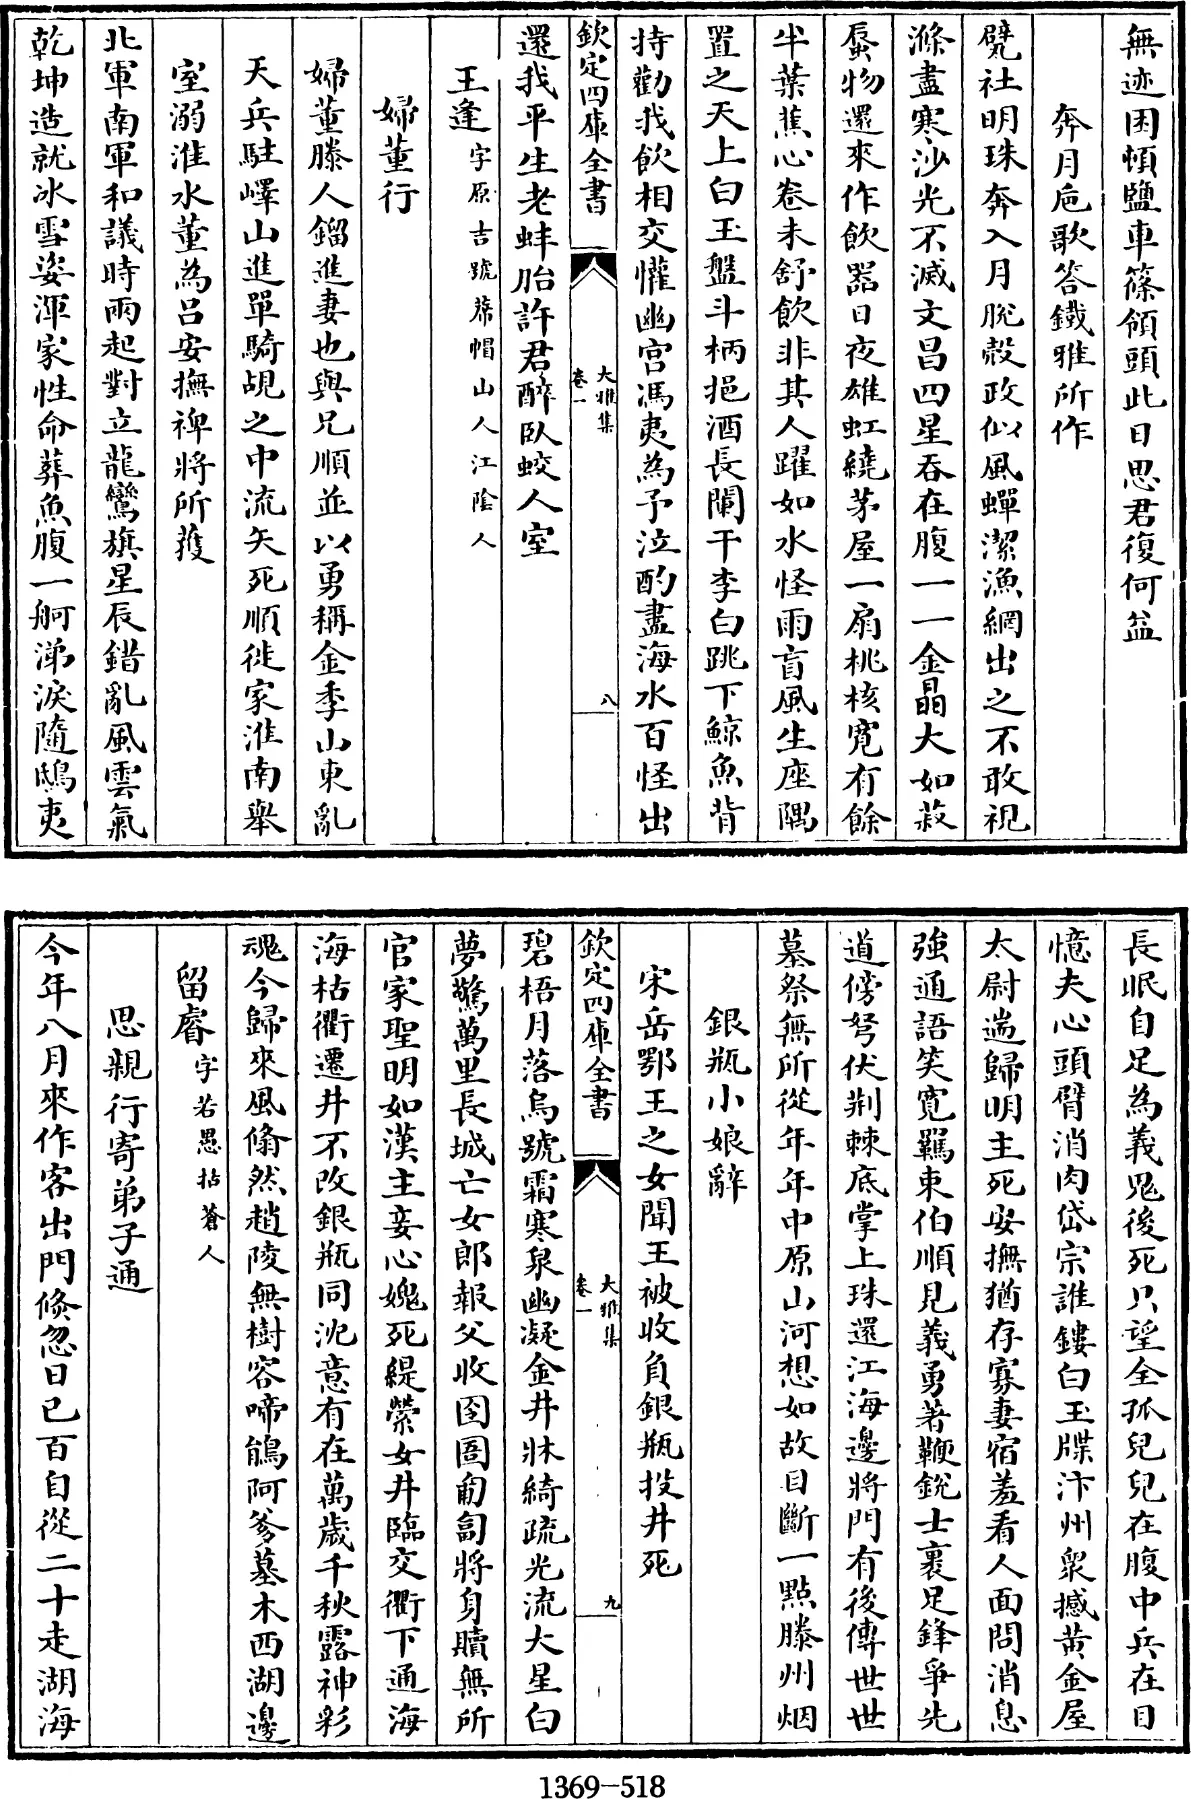 無迹困頓鹽車篠領頭此日思君復何益
奔月巵歌答鐵雅所作
甓社明珠奔入月脫殼政似風蟬潔漁網出之不敢視
滌盡寒沙光不滅文昌四星吞在腹一一金晶大如菽
蜃物還來作飲器日夜雄虹繞茅屋一扇桃核寛有餘
半葉蕉心卷未舒飲非其人躍如水怪雨盲風生座隅
置之天上白玉盤斗柄挹酒長闌干李白跳下鯨魚背
持勸我飲相交懽幽宫馮夷為予泣酌盡海水百怪出
欽定四庫全書
大雅集
卷一
八
還我平生老蚌胎許君醉臥蛟人室
王逢字原吉號席帽山人江陰人
婦董行
婦董滕人鎦進妻也與兄順並以勇稱金季山東亂
天兵駐嶧山進單騎覘之中流矢死順徙家淮南舉
室溺淮水董為呂安撫裨將所獲
北軍南軍和議時兩起對立龍鸞旗星辰錯亂風雲氣
乾坤造就冰雪姿渾家性命葬魚腹一舸涕淚隨鴟夷
長眠自足為義鬼後死只望全孤兒兒在腹中兵在目
憶夫心頭臂消肉岱宗誰鏤白玉牒汴州衆撼黄金屋
太尉遄歸明主死安撫猶存寡妻宿羞看人面問消息
強通語笑寛羈束伯順見義勇著鞭銳士裹足鋒爭先
道傍弩伏荆棘底掌上珠還江海邊將門有後傳世世
墓祭無所從年年中原山河想如故目斷一點滕州烟
銀瓶小娘辭
宋岳鄂王之女聞王被收負銀瓶投井死
欽定四庫全書
大雅集
卷一
九
碧梧月落烏號霜寒泉幽凝金井牀綺疏光流大星白
夢驚萬里長城亡女郎報父收囹圄匍匐將身贖無所
官家聖明如漢主妾心媿死緹縈女井臨交衢下通海
海枯衢遷井不改銀瓶同沈意有在萬歲千秋露神彩
魂今歸來風翛然趙陵無樹容啼鵑阿爹墓木西湖邊
留睿字若愚括蒼人
思親行寄弟子通
今年八月來作客出門倐忽日已百自從二十走湖海
1369-518